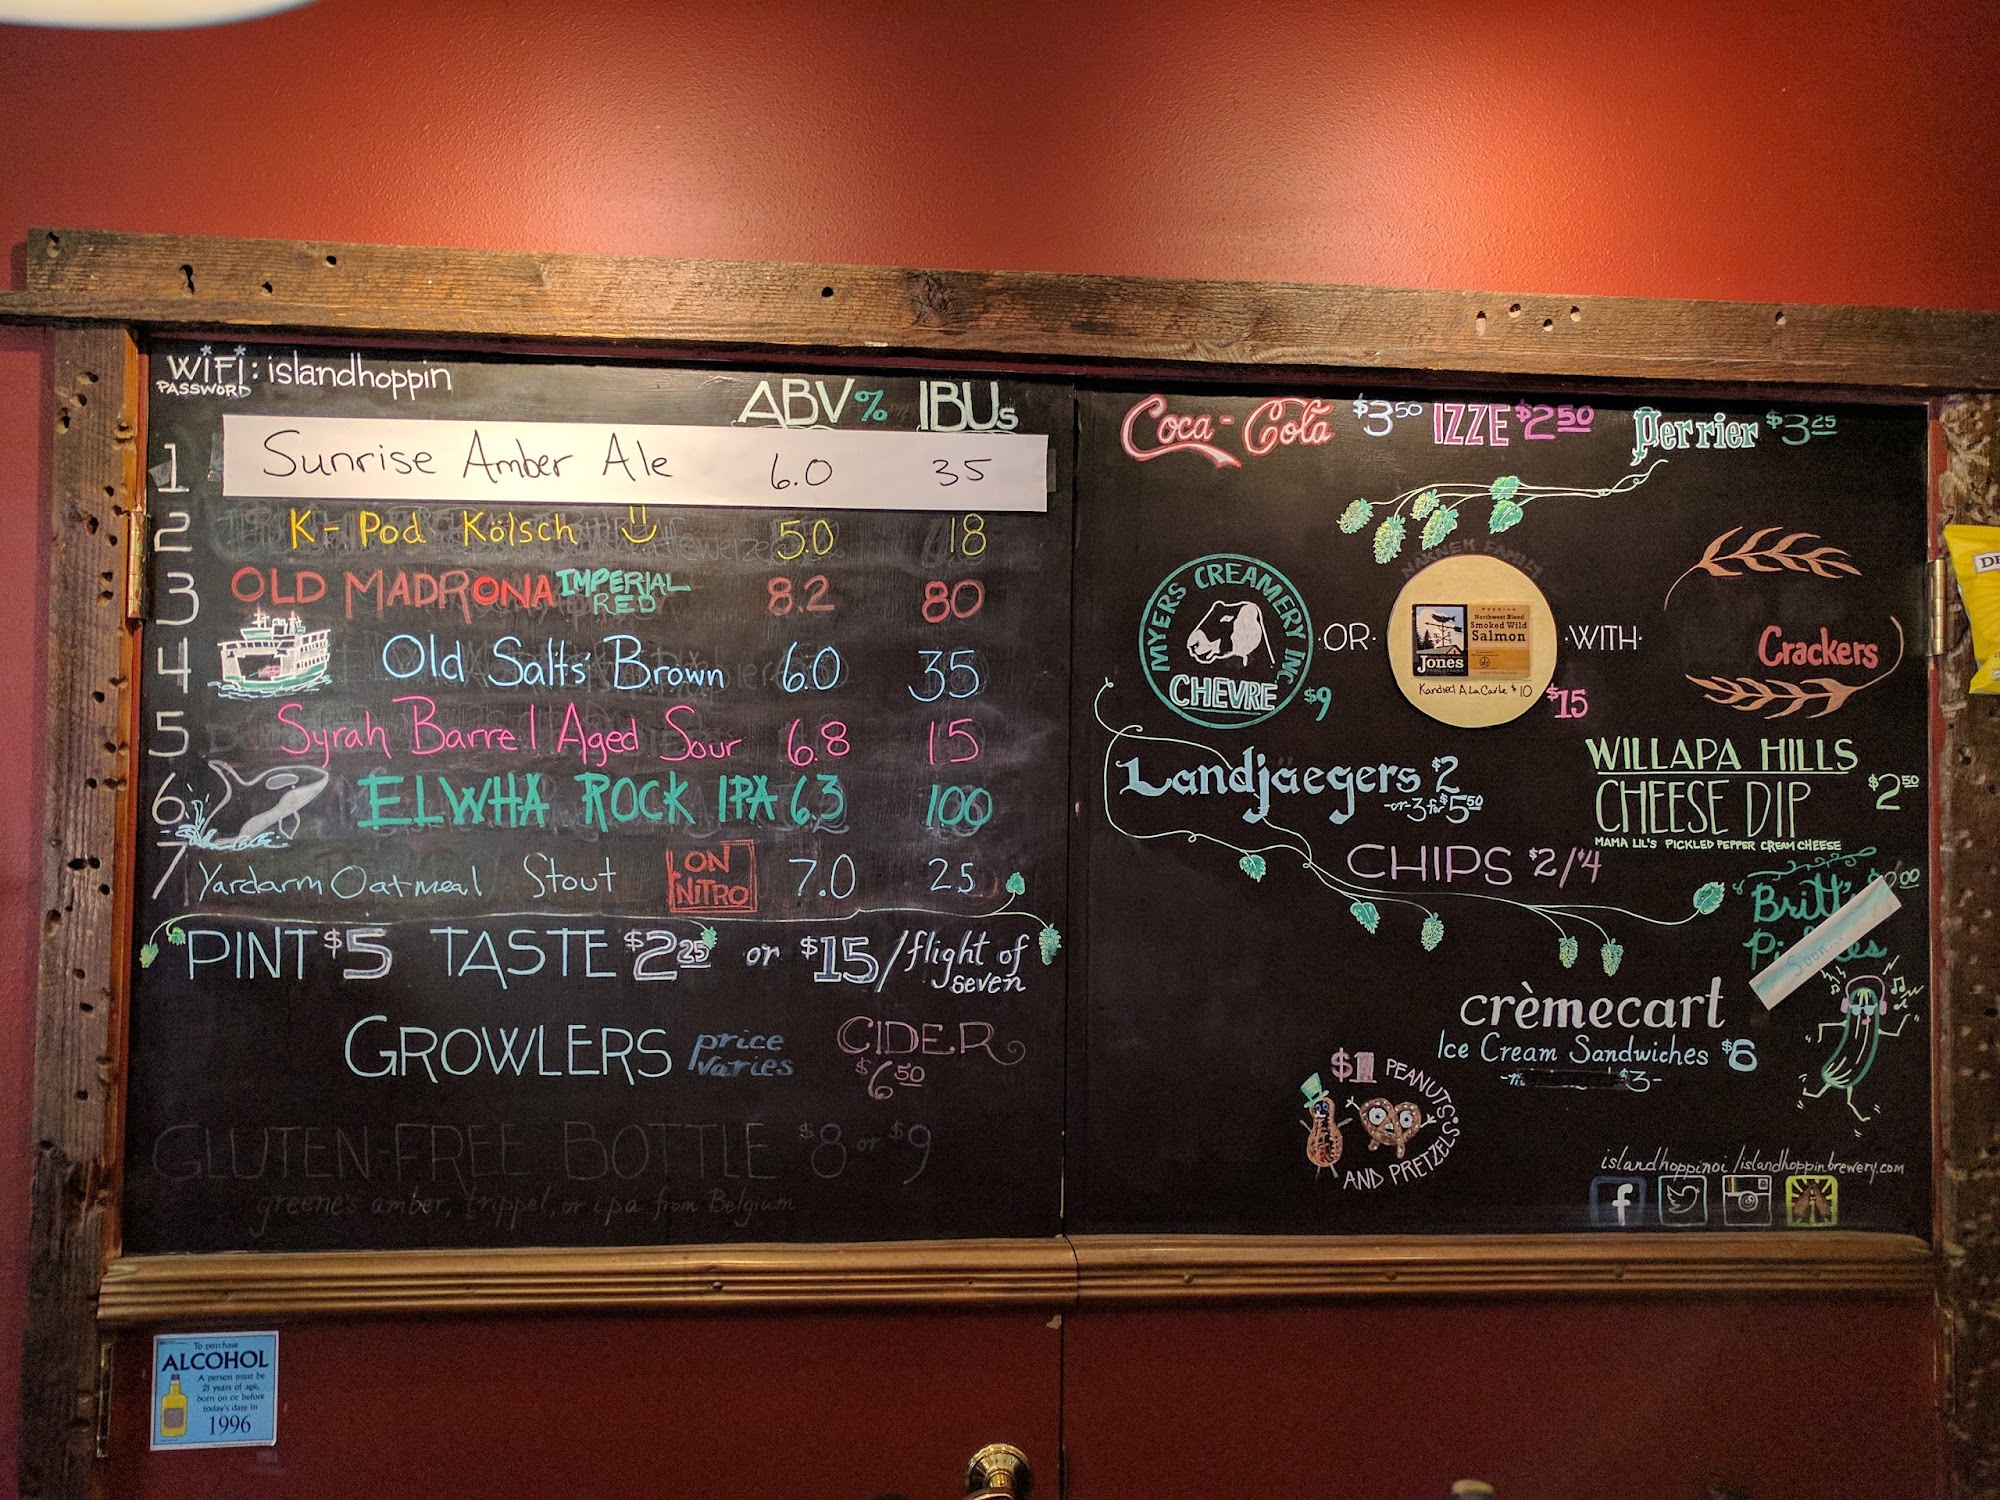 WiFi: islandhoppin
PASSWORD
ABV% IBUs
1 Sunrise Amber Ale 6.0 35
2 K-Pod Kölsch 5.0 18
3 OLD MADRONA IMPERIAL RED 8.2 80
4 Old Salts' Brown 6.0 35
5 Syrah Barrel Aged Sour 6.8 15
6 ELWHA ROCK IPA 6.3 100
7 Yardarm Oatmeal Stout ON NITRO 7.0 25
PINT $5 TASTE $2.25 or $15/flight of seven
GROWLERS price varies
CIDER $6.50
GLUTEN-FREE BOTTLE $8 or $9
greene's amber, trippel, or ipa from Belgium
Coca-Cola $3.50 IZZE $2.50 Perrier $3.25
MYERS CREAMERY INC
CHEVRE $9
·OR·
NAKNEK FAMILY
PREMIUM
Northwest Blend
Smoked Wild
Salmon
Jones
Kandied A La Carte $10
$15
·WITH·
Crackers
Landjaegers $2
-or- 3 for $5.50
WILLAPA HILLS
CHEESE DIP $2.50
MAMA LIL'S PICKLED PEPPER CREAM CHEESE
CHIPS $2/$4
"Britt's
Soon...
crèmecart
Ice Cream Sandwiches $6
$3-
$1 PEANUTS
AND PRETZELS
islandhoppinoi /islandhoppinbrewery.com
f
To purchase
ALCOHOL
A person must be
21 years of age,
born on or before
today's date in
1996